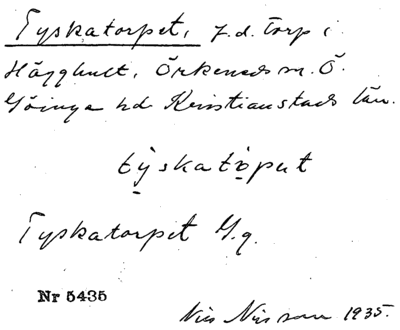 Tyskatorpet, f.d. torp i
Häjghult, Örkeneds sn. Ö.
Göinge hd. Kristianstads län.
tỵ̀skatọ̀put
Tyskatorpet
Nr 5435
Nils Nilsson 1935.